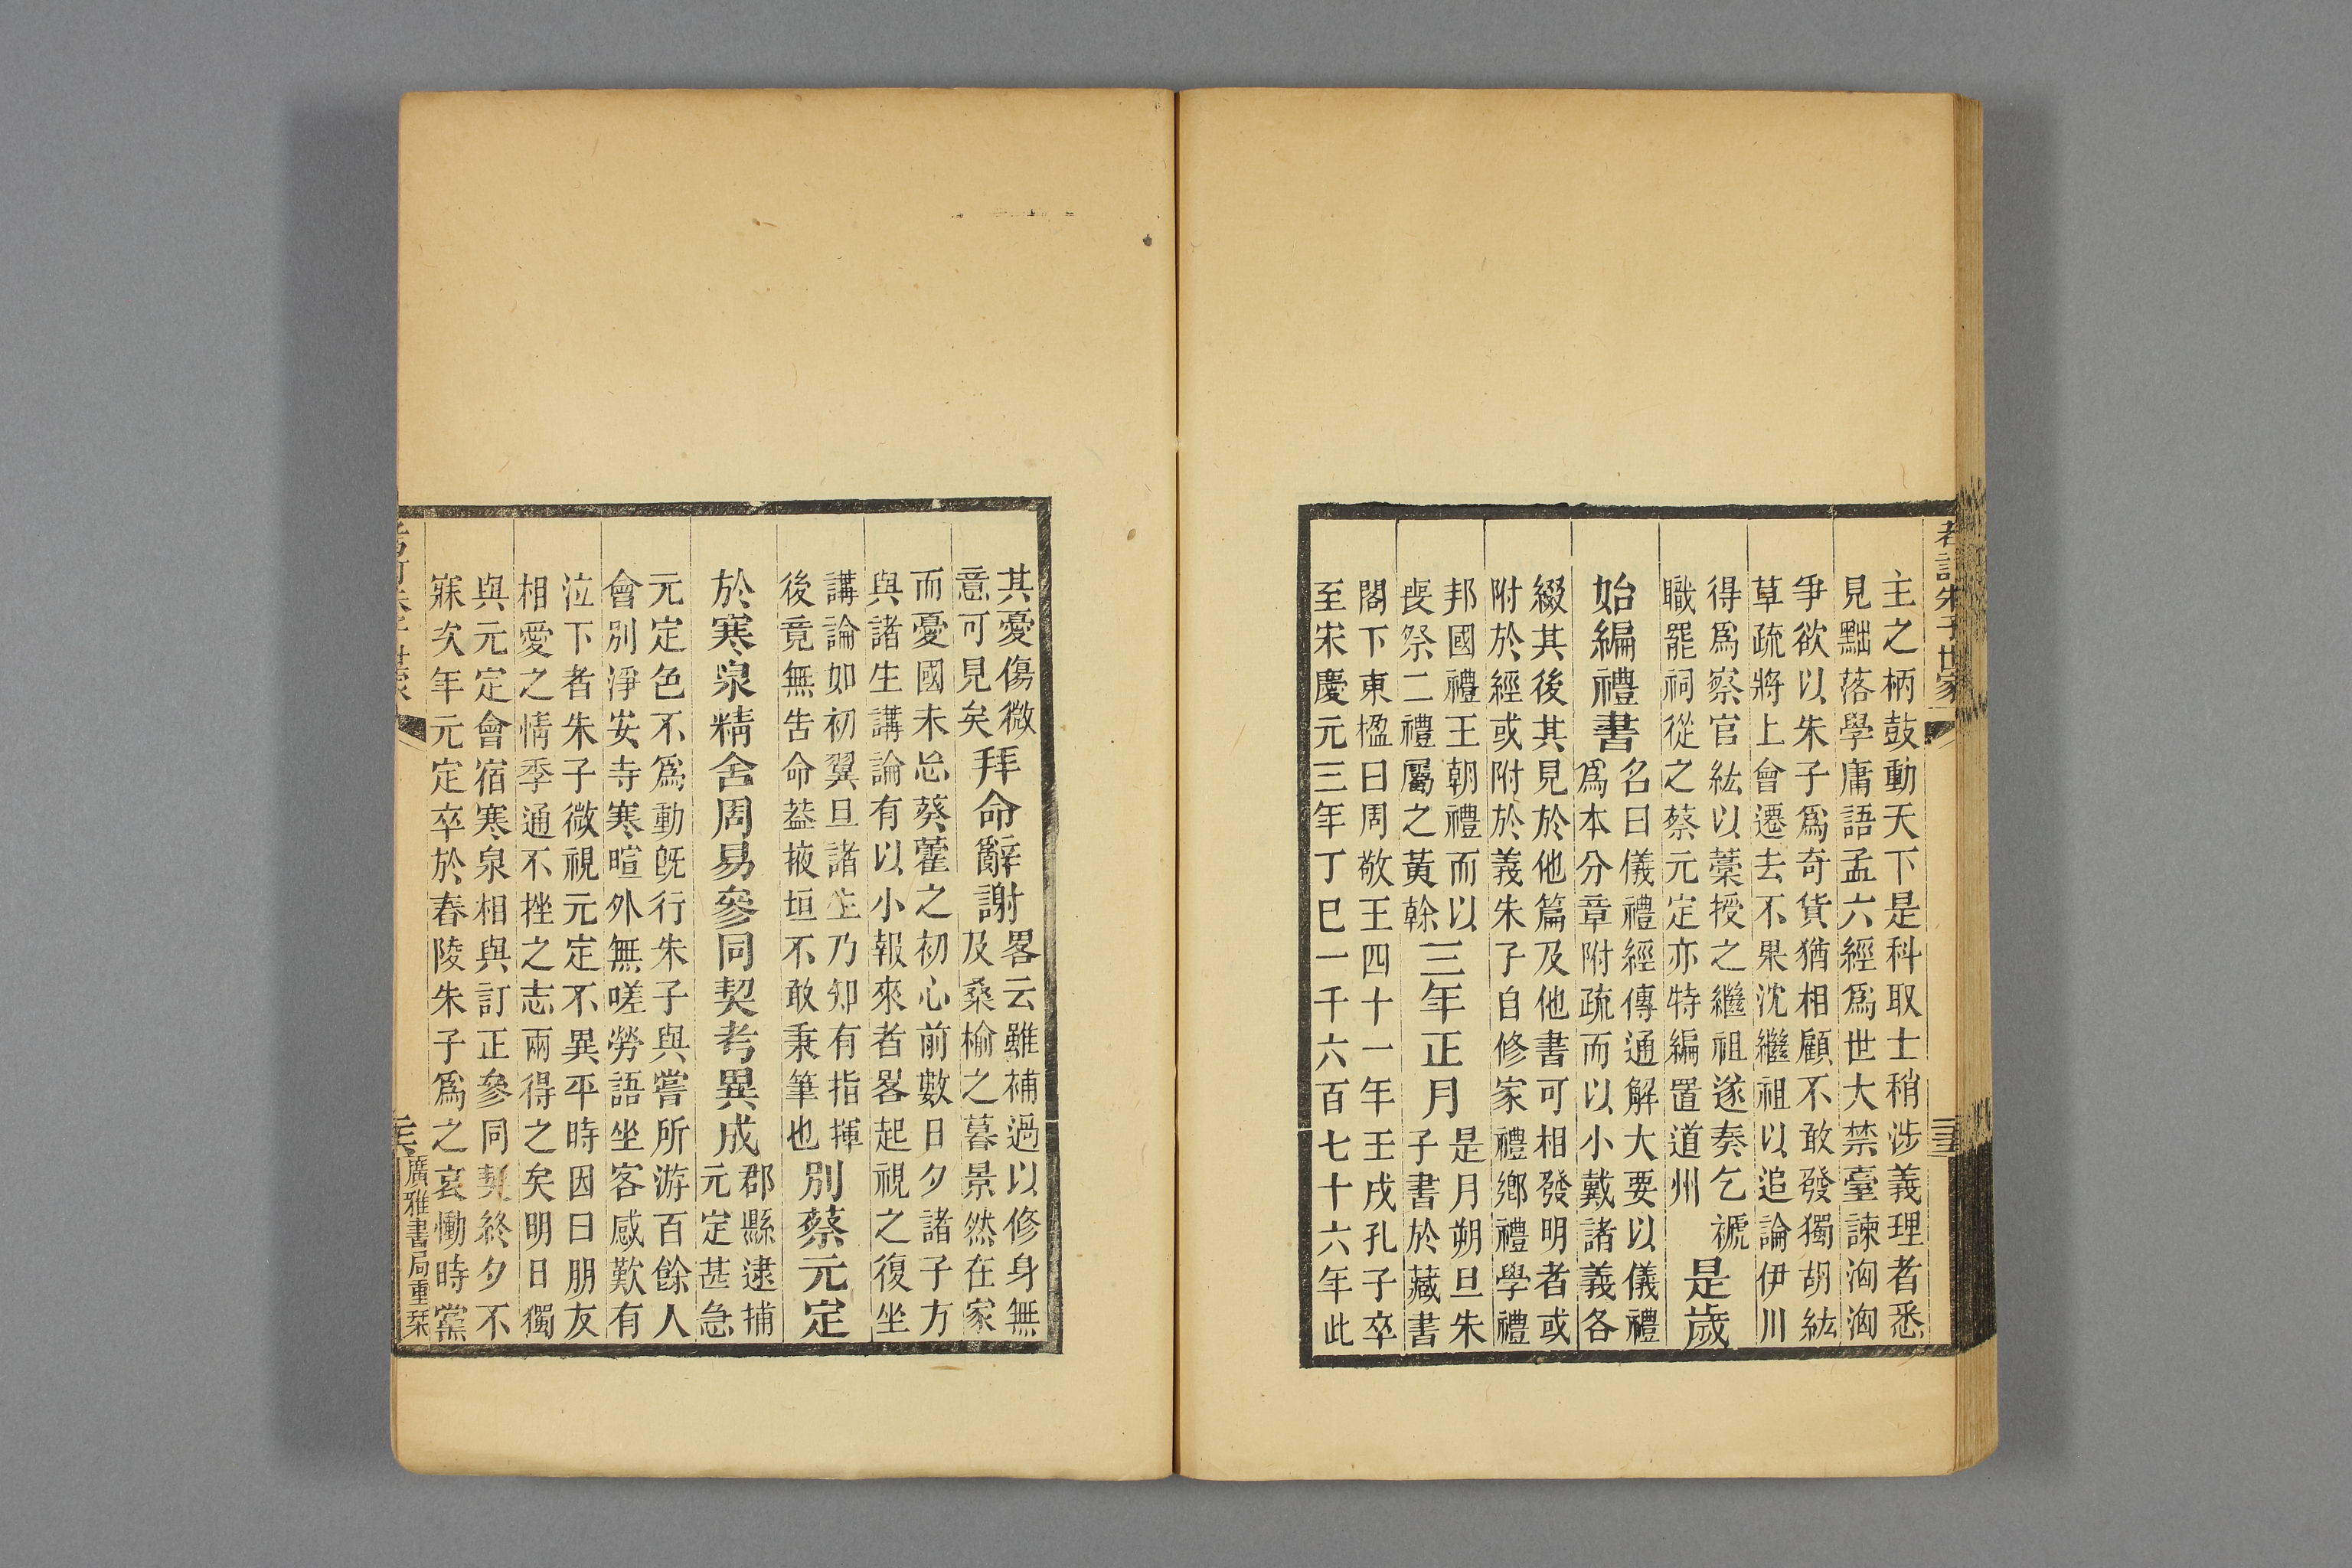 考訂朱子世家
主之柄鼓動天下是科取士稍涉義理者悉
見黜落學庸語孟六經爲世大禁臺諫洶洶
爭欲以朱子爲奇貨猶相顧不敢發獨胡紘
草疏將上會遷去不果沈繼祖以追論伊川
得爲察官紘以藁授之繼祖遂奏乞褫
職罷祠從之蔡元定亦特編置道州
是歲
始編禮書
名曰儀禮經傳通解大要以儀禮
爲本分章附疏而以小戴諸義各
綴其後其見於他篇及他書可相發明者或
附於經或附於義朱子自修家禮鄉禮學禮
邦國禮王朝禮而以
喪祭二禮屬之黃榦
三年正月
是月朔旦朱
子書於藏書
閣下東楹曰周敬王四十一年壬戌孔子卒
至宋慶元三年丁巳一千六百七十六年此
其憂傷微
意可見矣
拜命辭謝
畧云雖補過以修身無
及桑榆之暮景然在家
而憂國未忘葵藿之初心前數日夕諸子方
與諸生講論有以小報來者畧起視之復坐
講論如初翼旦諸生乃知有指揮
後竟無告命葢掖垣不敢秉筆也
別蔡元定
於寒泉精舍周易參同契考異成
郡縣逮捕
元定甚急
元定色不爲動旣行朱子與嘗所游百餘人
會別淨安寺寒暄外無嗟勞語坐客感歎有
泣下者朱子微視元定不異平時因曰朋友
相愛之情季通不挫之志兩得之矣明日獨
與元定會宿寒泉相與訂正參同契終夕不
寐次年元定卒於舂陵朱子爲之哀慟時黨
廣雅書局重栞